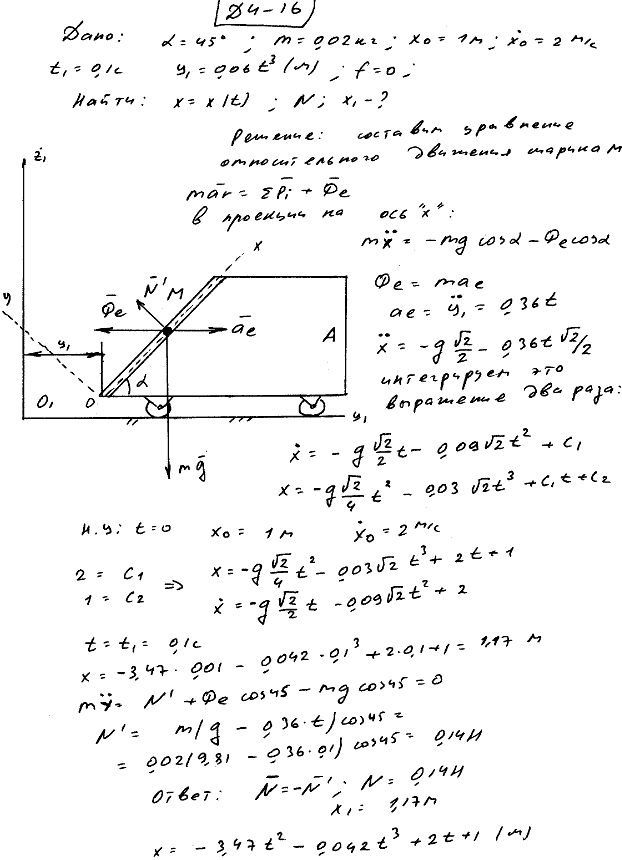 Д4-16
Дано: α = 45° ; m = 0,02 кг ; x₀ = 1 м ; ẋ₀ = 2 м/с
t₁ = 0,1 с y₁ = 0,06 t³ (м) ; f = 0 ;
Найти: x = x(t) ; N ; x₁ - ?
Решение: составим уравнение
относительного движения шарика М
mār = ΣP̄i + Φ̄e
в проекции на ось "x":
mẍ = -mg cosα - Φe cosα
Φe = mae
ae = ÿ₁ = 0,36t
ẍ = -g √2/2 - 0,36t √2/2
интегрируем это
выражение два раза:
z₁
y
y₁
O₁
O
α
Φ̄e
N̄'
M
x
āe
A
mḡ
y₁
ẋ = -g √2/2 t - 0,09√2 t² + C₁
x = -g √2/4 t² - 0,03 √2 t³ + C₁t + C₂
Н.У: t = 0 x₀ = 1 м ẋ₀ = 2 м/с
2 = C₁
1 = C₂
=>
x = -g √2/4 t² - 0,03√2 t³ + 2t + 1
ẋ = -g √2/2 t - 0,09√2 t² + 2
t = t₁ = 0,1 с
x = -3,47 · 0,01 - 0,042 · 0,1³ + 2·0,1 + 1 = 1,17 м
mÿ = N' + Φe cos45 - mg cos45 = 0
N' = m(g - 0,36·t) cos45 =
= 0,02(9,81 - 0,36·0,1) cos45 = 0,14Н
Ответ: N̄ = -N̄' ; N = 0,14Н
x₁ = 1,17 м
x = -3,47 t² - 0,042 t³ + 2t + 1 (м)